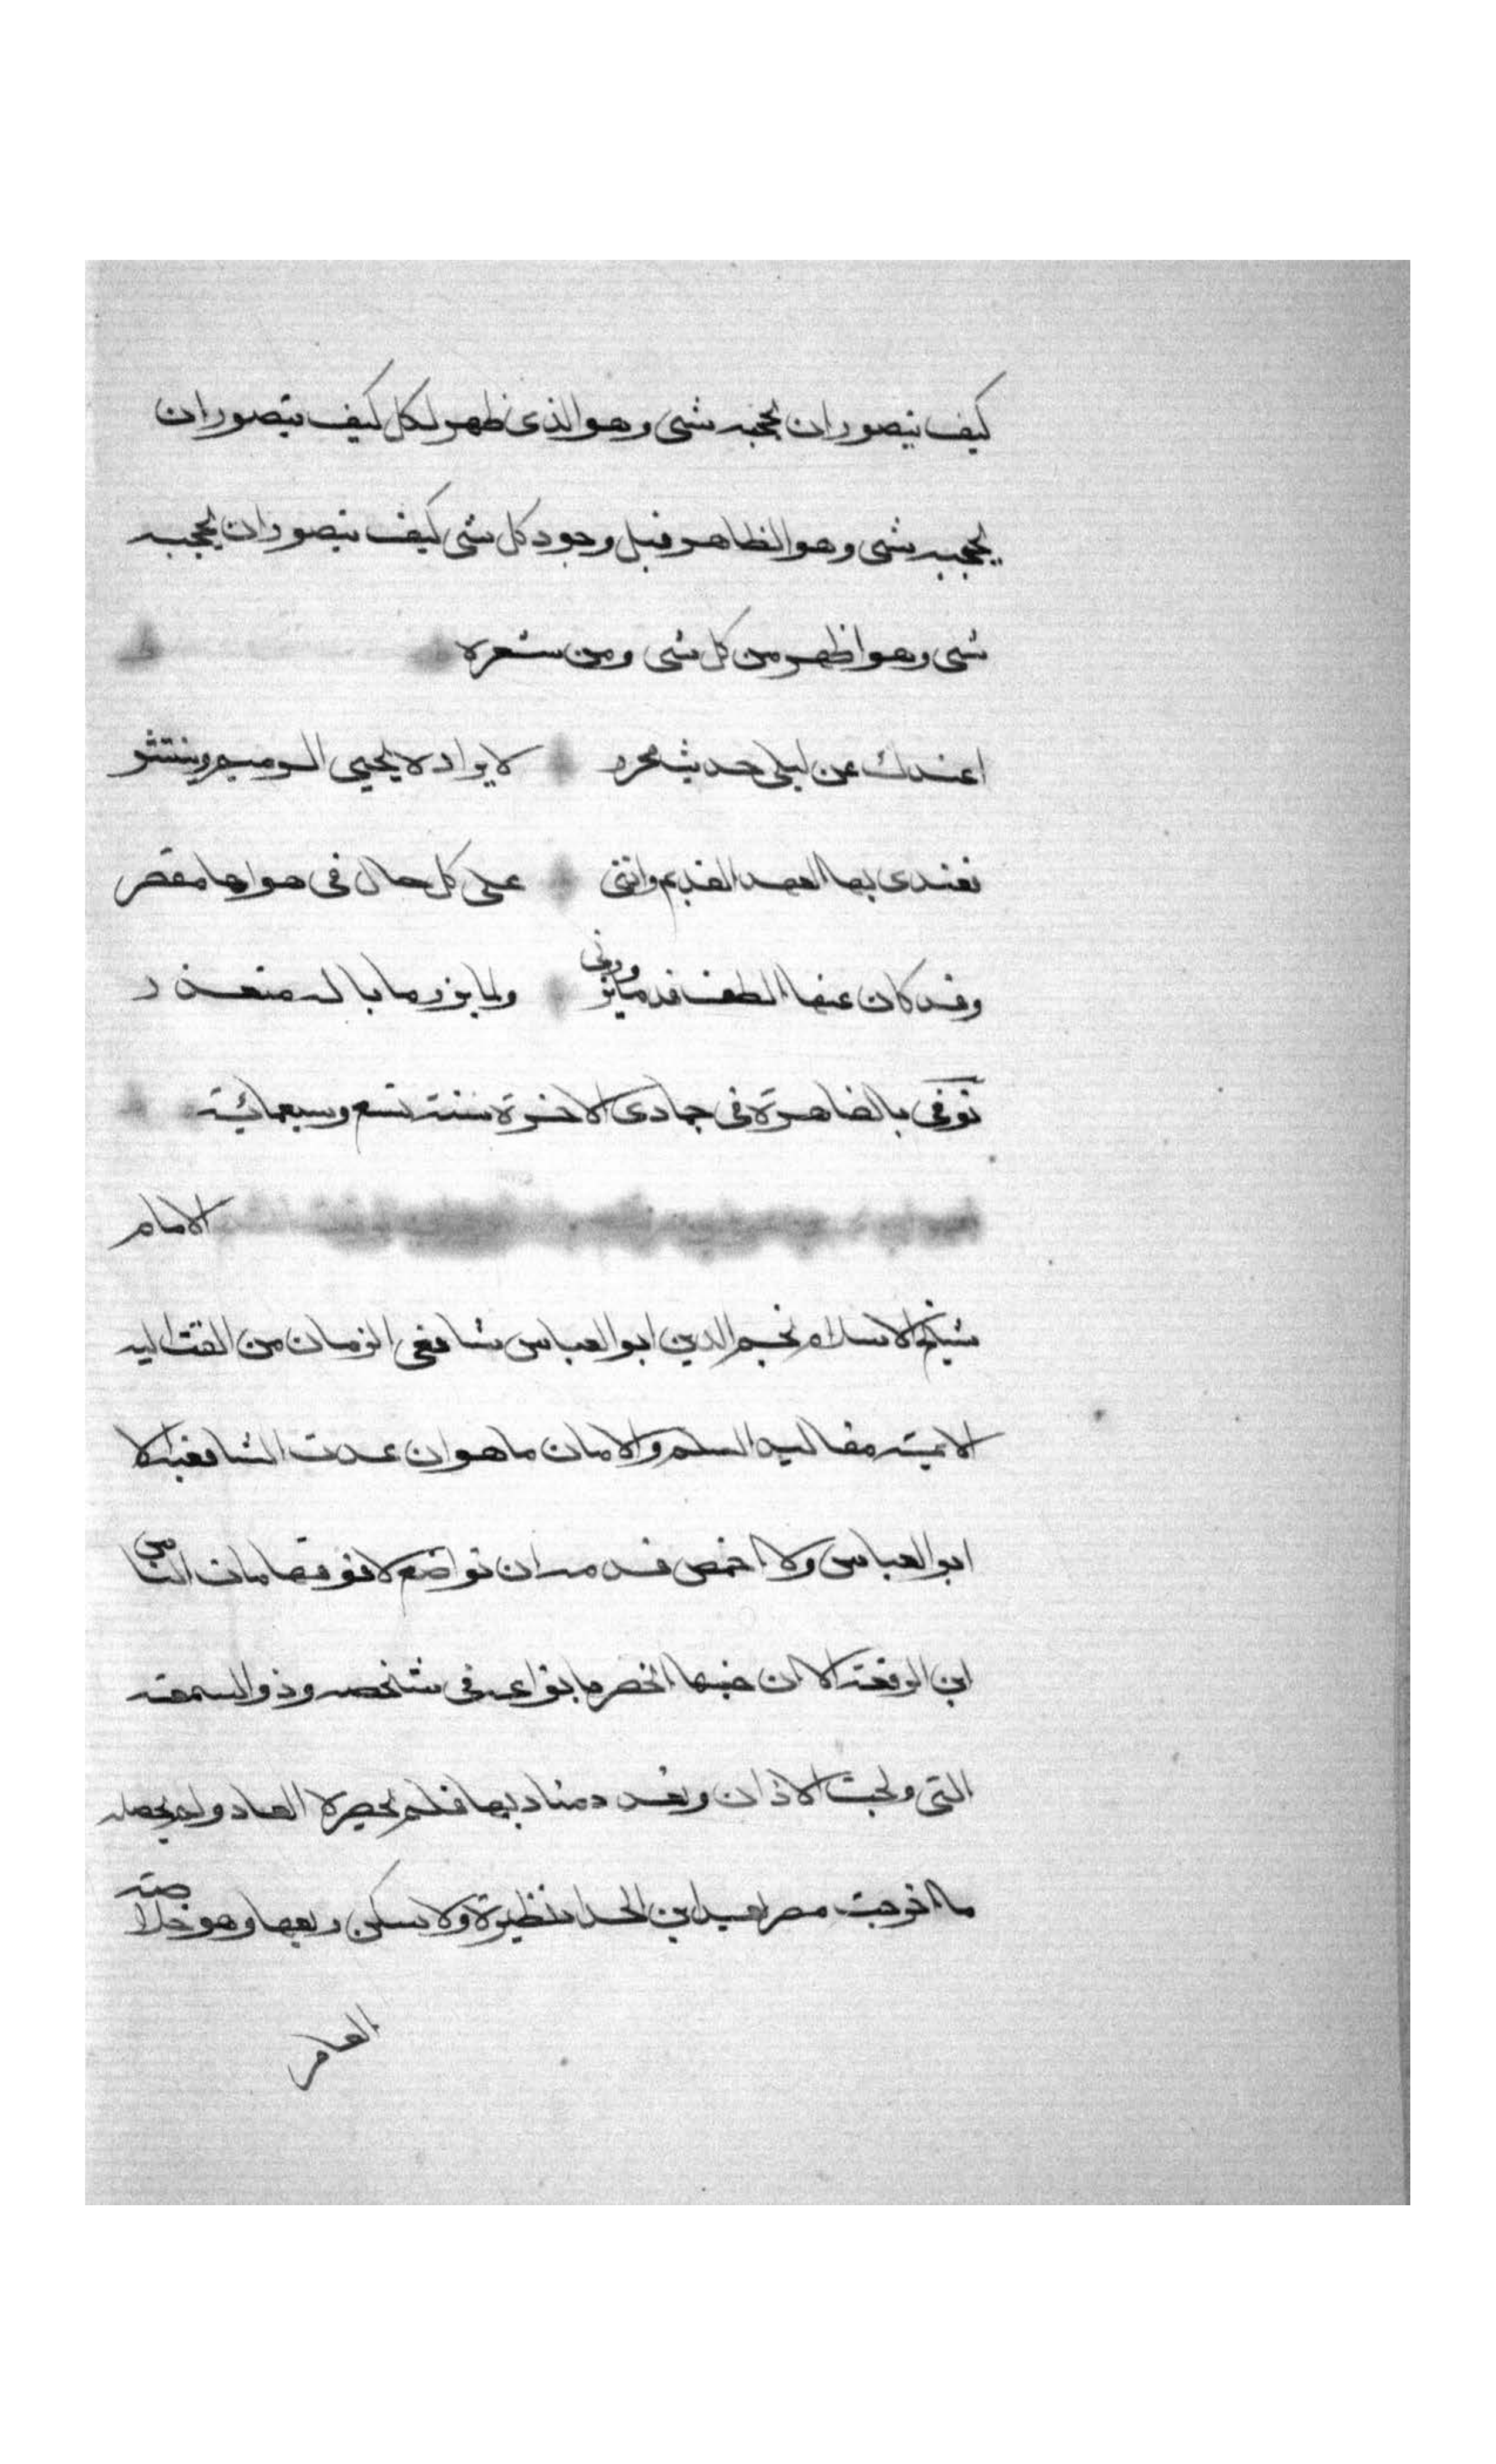 كيف يتصور ان يحجبه شى وهو الذى ظهر لكل كيف يتصور ان
يحجبه شى وهو الظاهر قبل وجود كل شى كيف يتصور ان يحجبه
شى وهو اظهر من كل شى ومن شعره
اعندك عن ليلى حديث محرر لايراده يحيى الرميم وينشر
فعندى بها العهد القديم واننى على كل حال فى هواها مقصر
وقد كان عنها الطف قدما يزورنى ولما يزر ما باله متعذر
توفى بالقاهرة فى جمادى الاخرة سنة تسع وسبعمائية
الامام
شيخ الاسلام نجم الدين ابو العباس شافعى الزمان من القت اليه
الايمة مقاليد السلم والامان ما هو ان عدت الشافعية الا
ابو العباس ولا اخمص قدمه ان تواضع الا فوق هامات الناس
ابن الرفعة الا ان جنسها انحصر بانواعه فى شخصه وذو السمعة
التى ولجت الاذان وتعدد مناديها فلم يحصره العاد ولم يحصه
ما اخرجت مصر بعد ابن الحداد نظيره ولا سكن ربعها وهو خلاصة
العامر